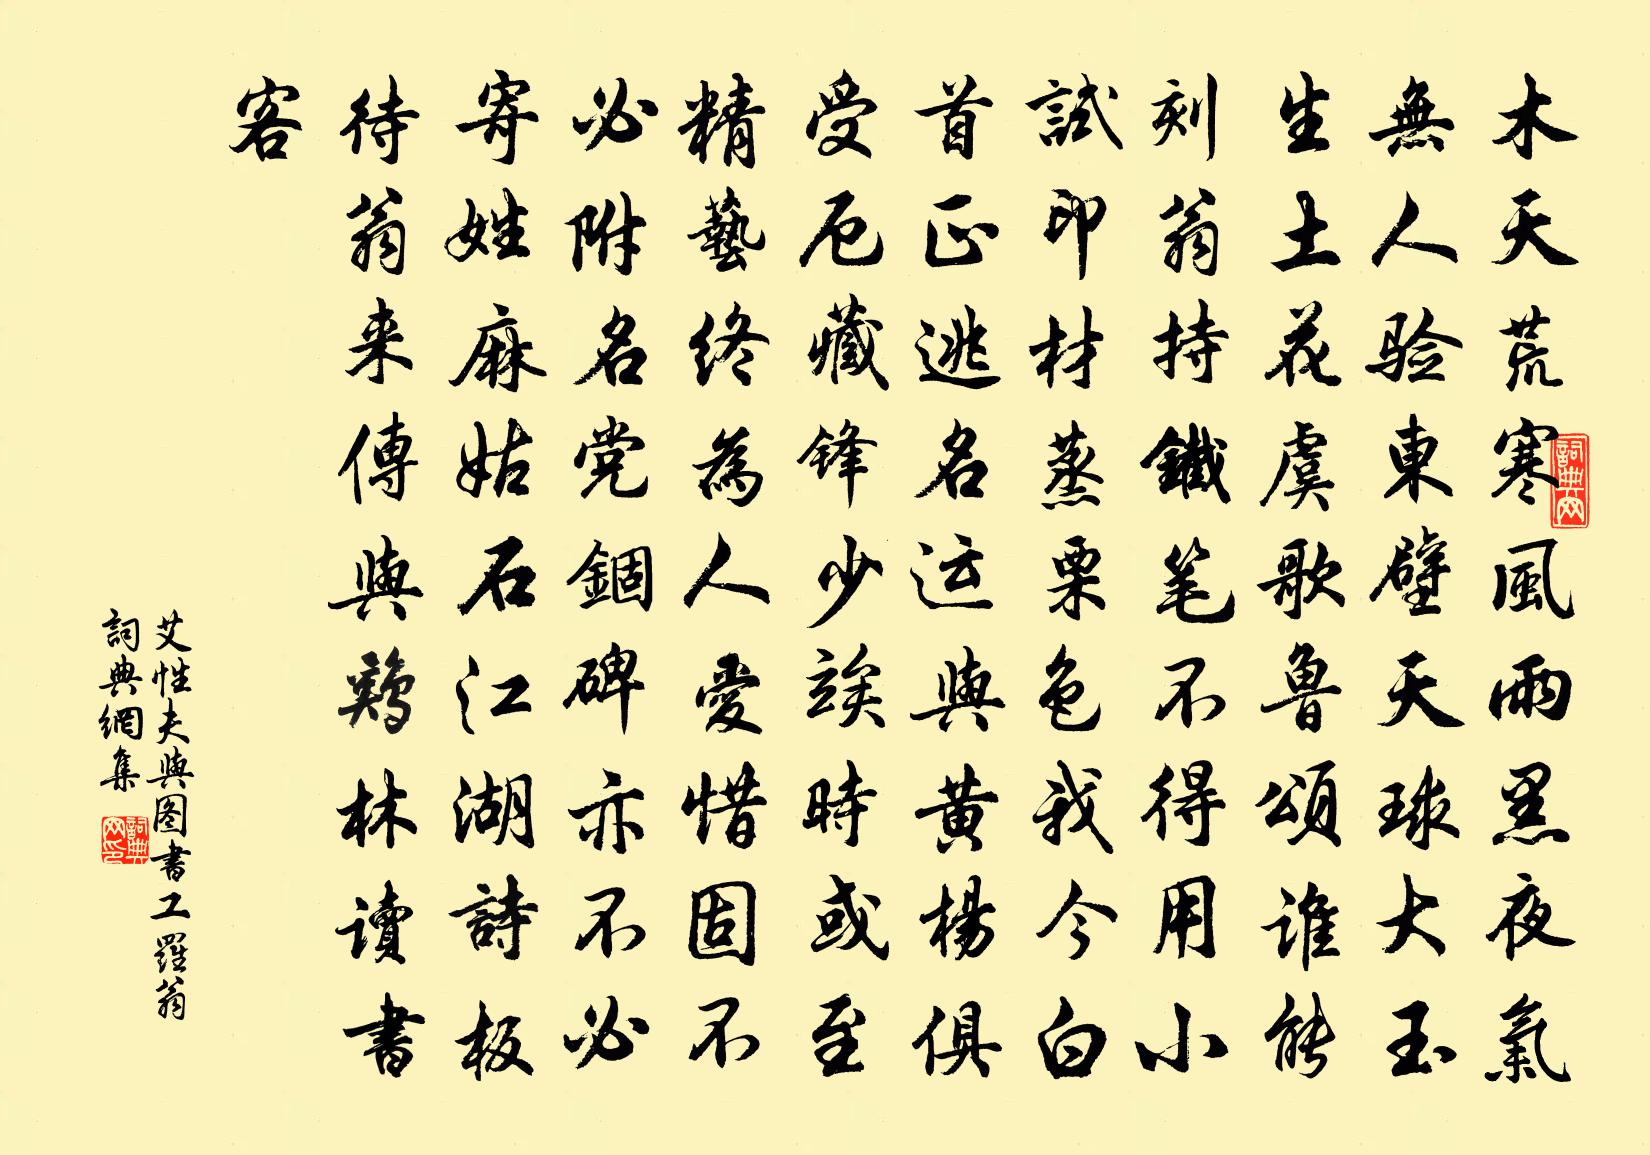 木天荒寒風雨黑夜氣
無人验東壁天球大玉
生土花虞歌魯頌谁能
刻翁持鐵笔不得用小
試印材蒸栗色我今白
首正逃名运與黄楊俱
受厄藏锋少诶時或至
精藝終為人愛惜固不
必附名党錮碑亦不必
寄姓麻姑石江湖詩板
待翁来傳與鷄林读書
客
艾性夫與图書工羅翁
詞典網集
詞典网
詞典网印